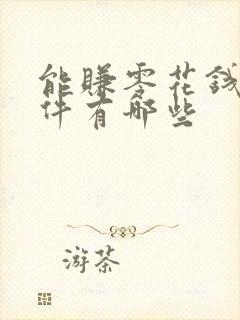 能賺零花錢
件有那些
游茶